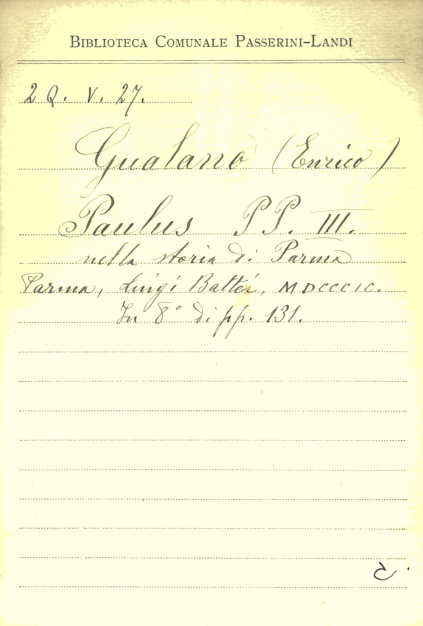 BIBLIOTECA COMUNALE PASSERINI-LANDI
2 Q. V. 27.
Gualano (Enrico)
Paulus PP. III.
nella storia di Parma
Parma, Luigi Battei, MDCCCIC.
In 8° di pp. 131.